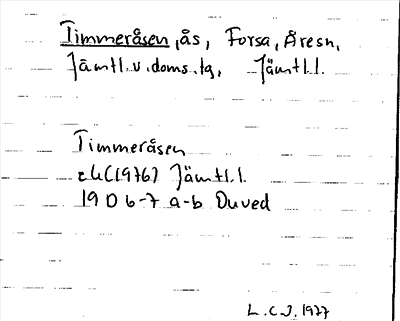 Timmeråsen, ås, Forsa, Åresn,
Jämtl.v.doms.lg, Jämtl.l.
Timmeråsen
ek(1976) Jämtl.l.
19 D 6-7 a-b Duved
L.C.J. 1977